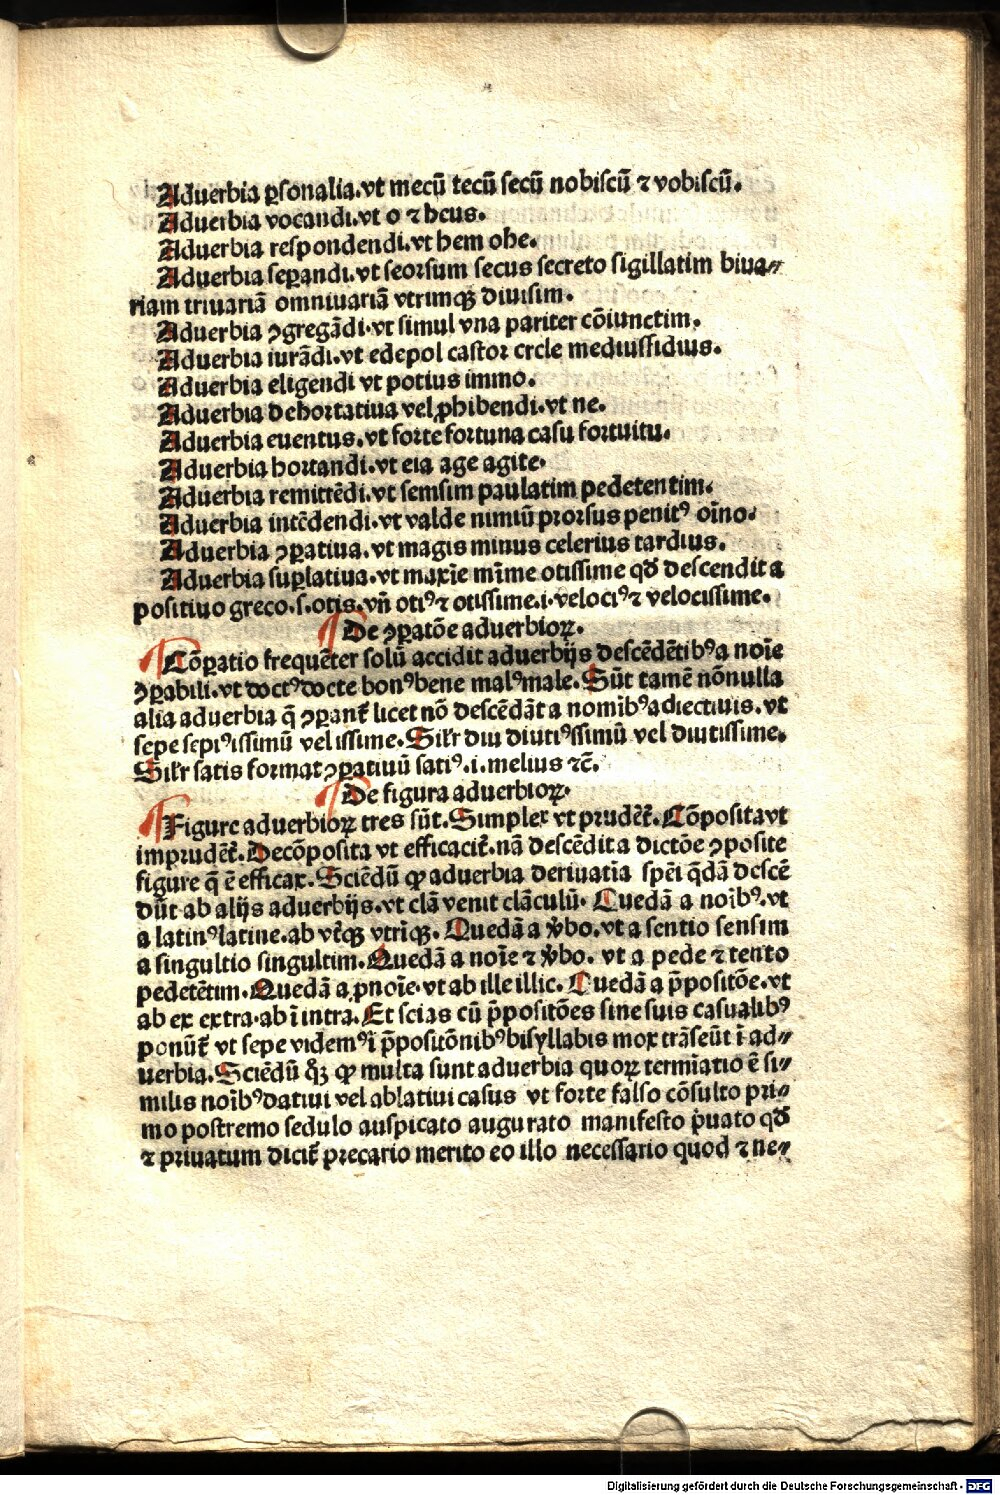 Aduerbia ꝑsonalia.vt mecū tecū secū nobiscū ⁊ vobiscū.
Aduerbia vocandi.vt o ⁊ heus.
Aduerbia respondendi.vt hem ohe.
Aduerbia seꝑandi.vt seorsum secus secreto sigillatim biua⸗
riam triuariā omniuariā vtrimqꝫ diuisim.
Aduerbia ꝯgregādi.vt simul vna pariter cōiunctim.
Aduerbia iurādi.vt edepol castor ercle mediussidius.
Aduerbia eligendi vt potius immo.
Aduerbia dehortatiua vel ꝓhibendi.vt ne.
Aduerbia euentus.vt forte fortuna casu fortuitu.
Aduerbia hortandi.vt eia age agite.
Aduerbia remittēdi.vt semsim paulatim pedetentim.
Aduerbia intēdendi.vt valde nimiū prorsus penitꝰ oīno.
Aduerbia ꝯꝑatiua.vt magis minus celerius tardius.
Aduerbia suꝑlatiua.vt maxīe mīme otissime qđ descendit a
positiuo greco.s.otis.vñ otiꝰ ⁊ otissime.i.velociꝰ ⁊ velocissime.
De ꝯꝑatōe aduerbioꝝ.
Cōꝑatio frequēter solū accidit aduerbijs descēdētibꝰ a noīe
ꝯꝑabili.vt doctꝰ docte bonꝰ bene malꝰ male. Sūt tamē nōnulla
alia aduerbia q̄ ꝯꝑant̄ licet nō descēdāt a nomībꝰ adiectiuis.vt
sepe sepiꝰ issimū vel issime. Silr̄ diu diutiꝰ ssimū vel diutissime.
Silr̄ satis format ꝯꝑatiuū satiꝰ.i.melius ⁊c̄.
De figura aduerbioꝝ.
Figure aduerbioꝝ tres sūt. Simplex vt prudēt̄. Cōposita vt
imprudēt̄. Decōposita vt efficacit̄.nā descēdit a dictōe ꝯposite
figure q̄ ē efficax. Sciēdū ꝙ aduerbia deriuatia spēi q̄dā descē
dūt ab alijs aduerbijs.vt clā venit clāculū. Quedā a noībꝰ.vt
a latinꝰ latine.ab vt̄qꝫ vtrīqꝫ. Quedā a v̄bo.vt a sentio sensim
a singultio singultim. Quedā a noīe ⁊ v̄bo. vt a pede ⁊ tento
pedetētim. Quedā a ꝓnoīe.vt ab ille illic. Quedā a p̄positōe.vt
ab ex extra.ab ī intra. Et scias cū p̄positōes sine suis casualibꝰ
ponūt̄ vt sepe videmꝰ ī p̄positōnibꝰ bisyllabis mox trāseūt ī ad⸗
uerbia. Sciēdū q̊ꝫ ꝙ multa sunt aduerbia quoꝝ termīatio ē si⸗
milis noībꝰ datiui vel ablatiui casus vt forte falso cōsulto pri⸗
mo postremo sedulo auspicato augurato manifesto p̄uato qđ
⁊ priuatum dicit̄ precario merito eo illo necessario quod ⁊ ne⸗
Digitalisierung gefördert durch die Deutsche Forschungsgemeinschaft - DFG